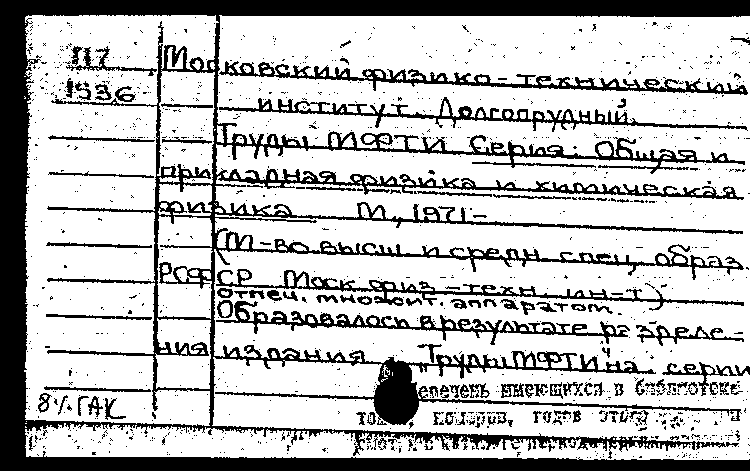 П7 Московский физико-технический
1936 институт. Долгопрудный.
Труды МФТИ Серия: Общая и
прикладная физика и химическая
физика. М., 1971-
(М-во высш. и средн. спец. образ.
РСФСР Моск. физ.-техн. ин-т)
отпеч. множит. аппаратом.
Образовалось в результате разделе-
ния издания „Труды МФТИ" на серии
перечень имеющихся в библиотеке
томов, номеров, годов этого
8% ГАК